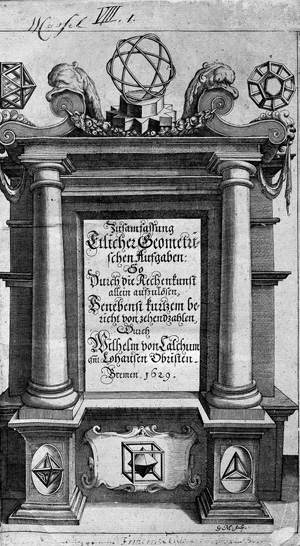 VIII. 1.
Zusamfassung
Etlicher Geometri-
schen Aufgaben:
So
Durch die Rechenkunst
allein aufzulösen,
Benebenst kurtzem be-
richt von zehendzahlen,
Durch
Wilhelm von Calchum
gnt Lohausen Obristen.
Bremen, 1629.